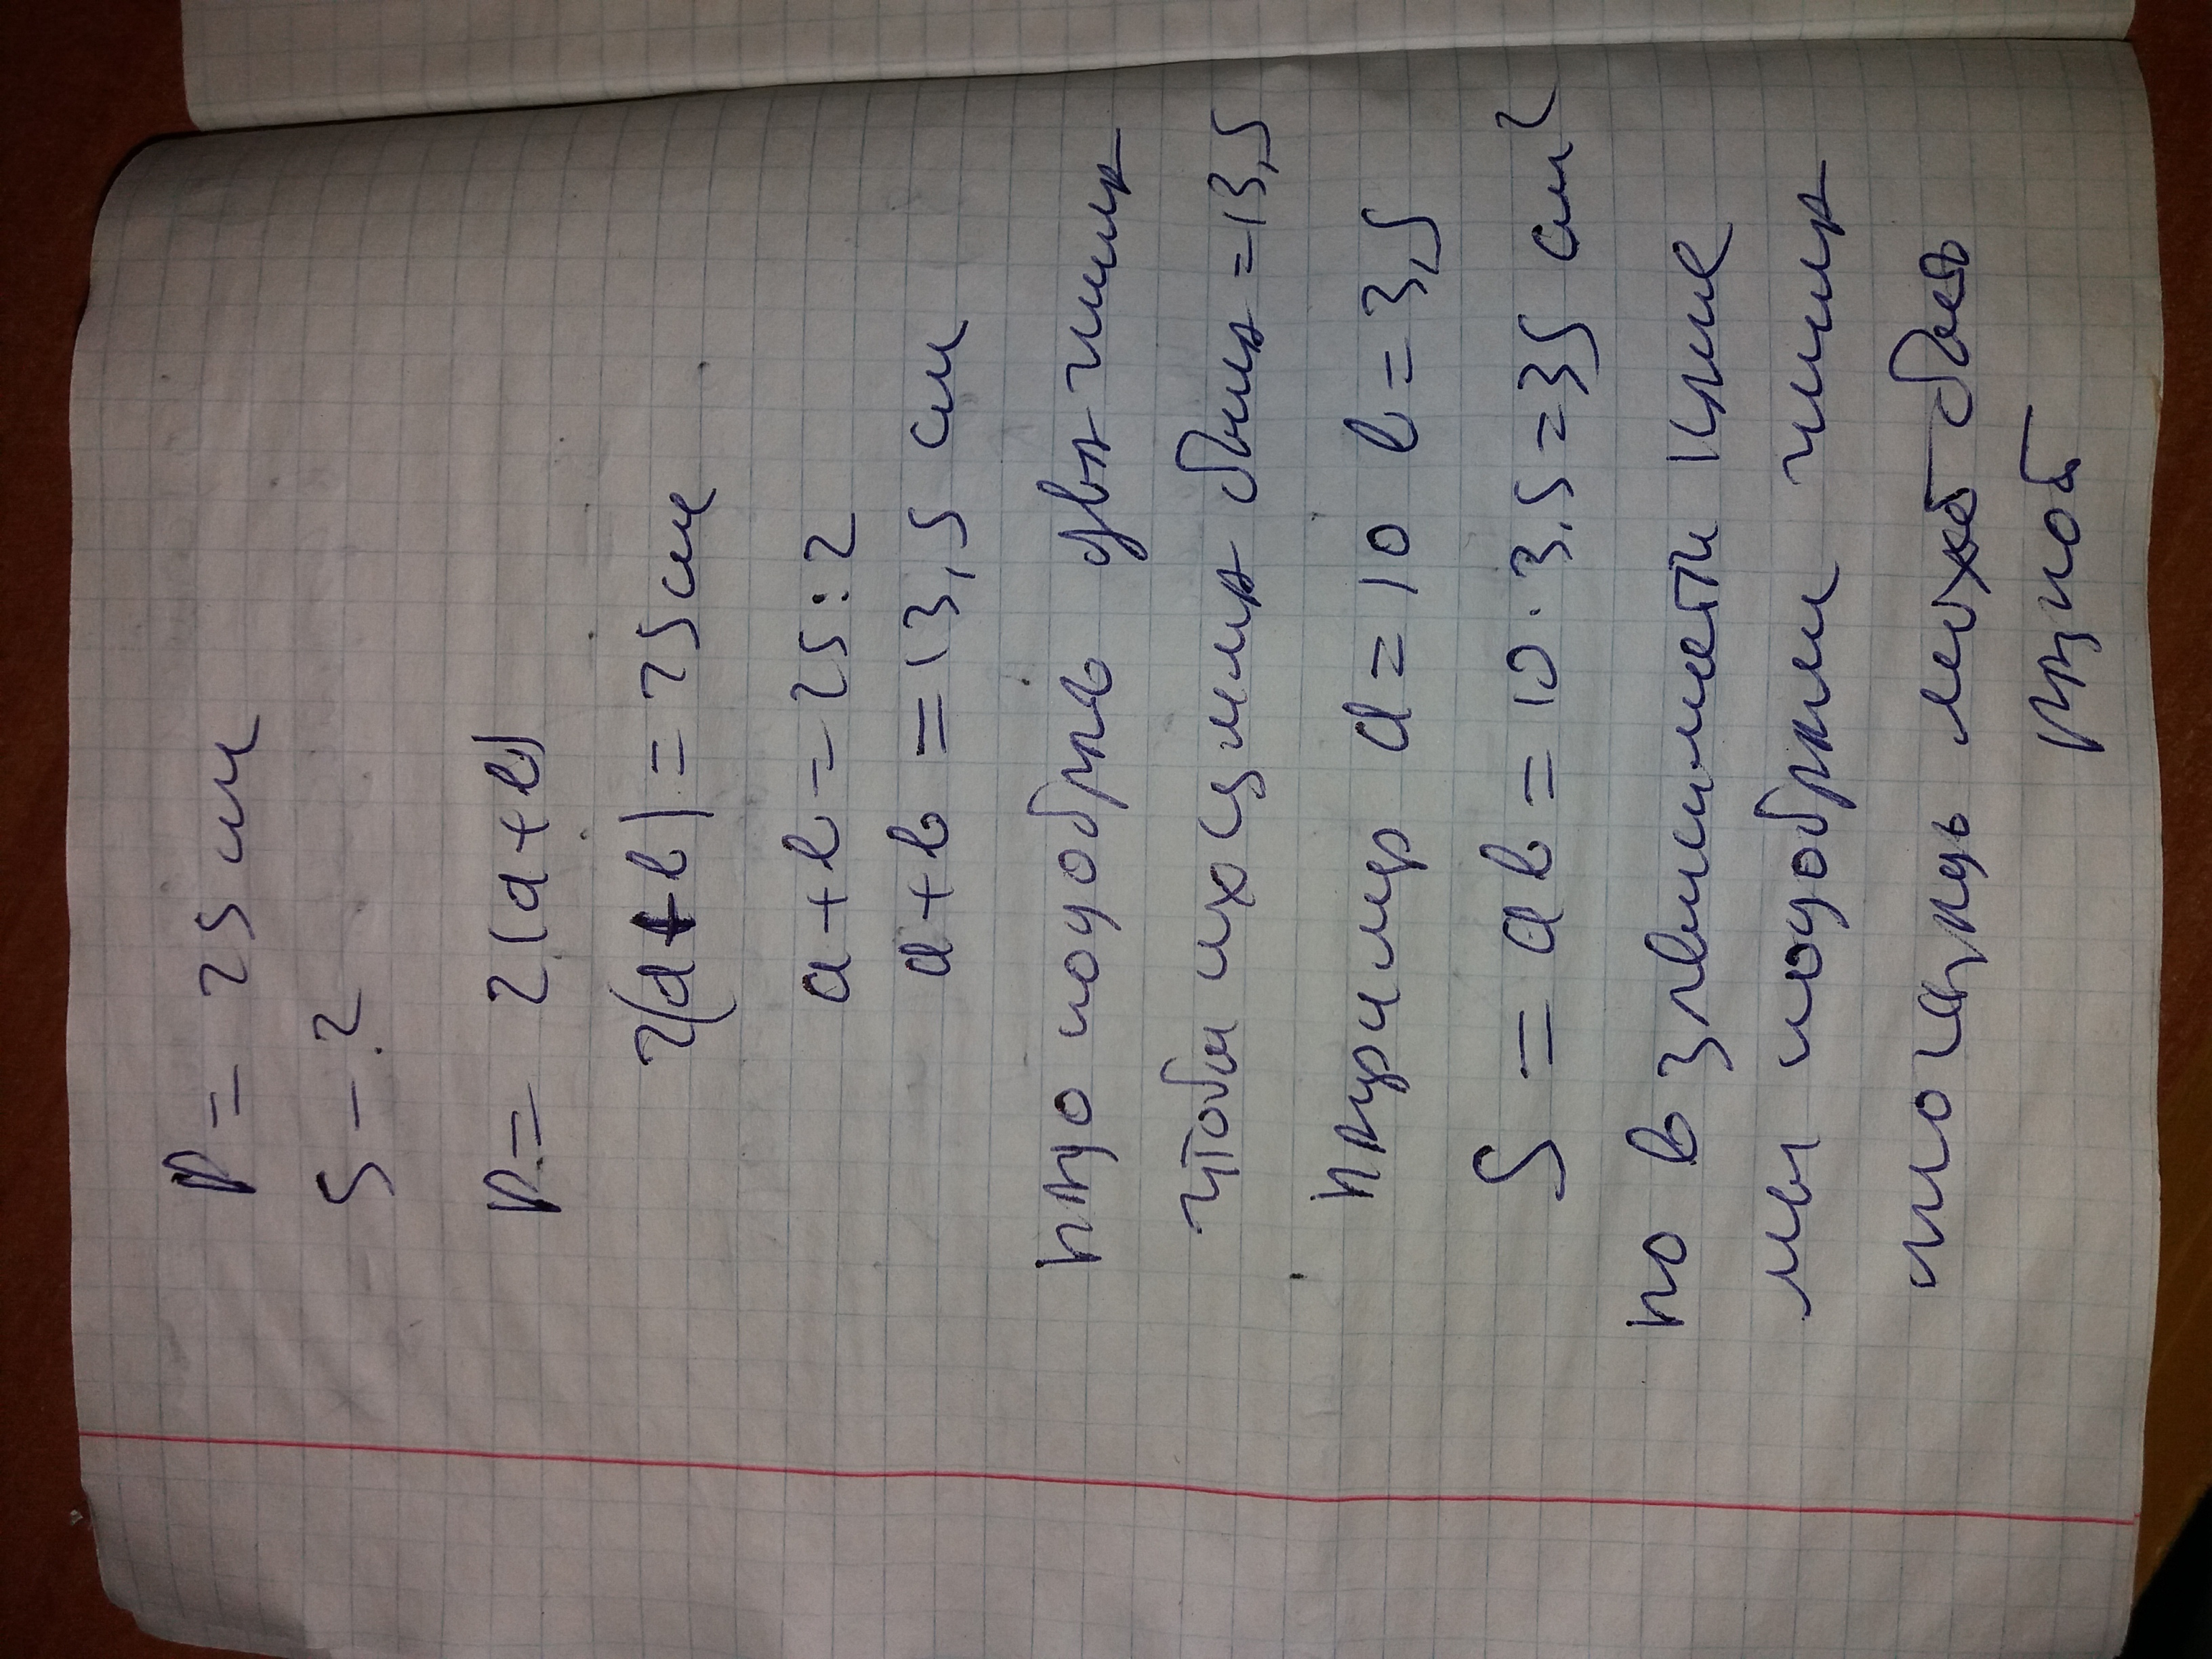 P = 25 см
S - ?
P = 2(a+b)
2(a+b) = 25 см
a + b = 25 : 2
a + b = 13,5 см
надо подобрать два числа
чтобы их сумма была = 13,5
например a = 10 b = 3,5
S = ab = 10 · 3,5 = 35 см²
но в зависимости какие
мы подобрали числа
площадь может быть
разной